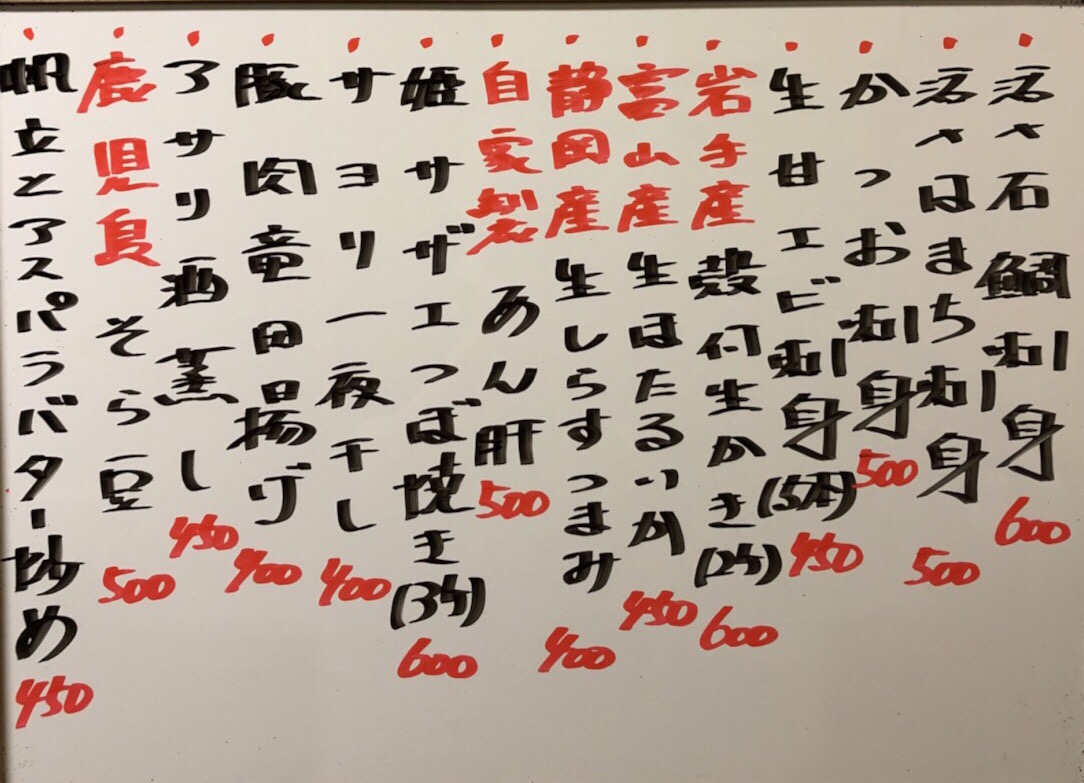 活〆石鯛刺身 600
活〆はまち刺身 500
かつお刺身 500
生甘エビ刺身(5本) 450
岩手産 殻付生かき(2ケ) 600
富山産 生ほたるいか 450
静岡産 生しらすつまみ 400
自家製 あん肝 500
姫サザエつぼ焼き(3ケ) 600
サヨリ一夜干し 400
豚肉竜田揚げ 400
アサリ酒蒸し 450
鹿児島 そら豆 500
帆立とアスパラバター炒め 450